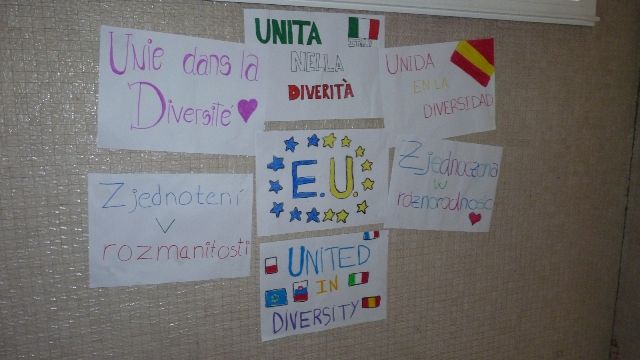 Unie dans la
Diversité
UNITA
NELLA
DIVERITÀ
UNIDA
EN LA
DIVERSIDAD
Zjednotení
v
rozmanitosti
E.U.
Zjednoczona
w
róznorodności
UNITED
IN
DIVERSITY